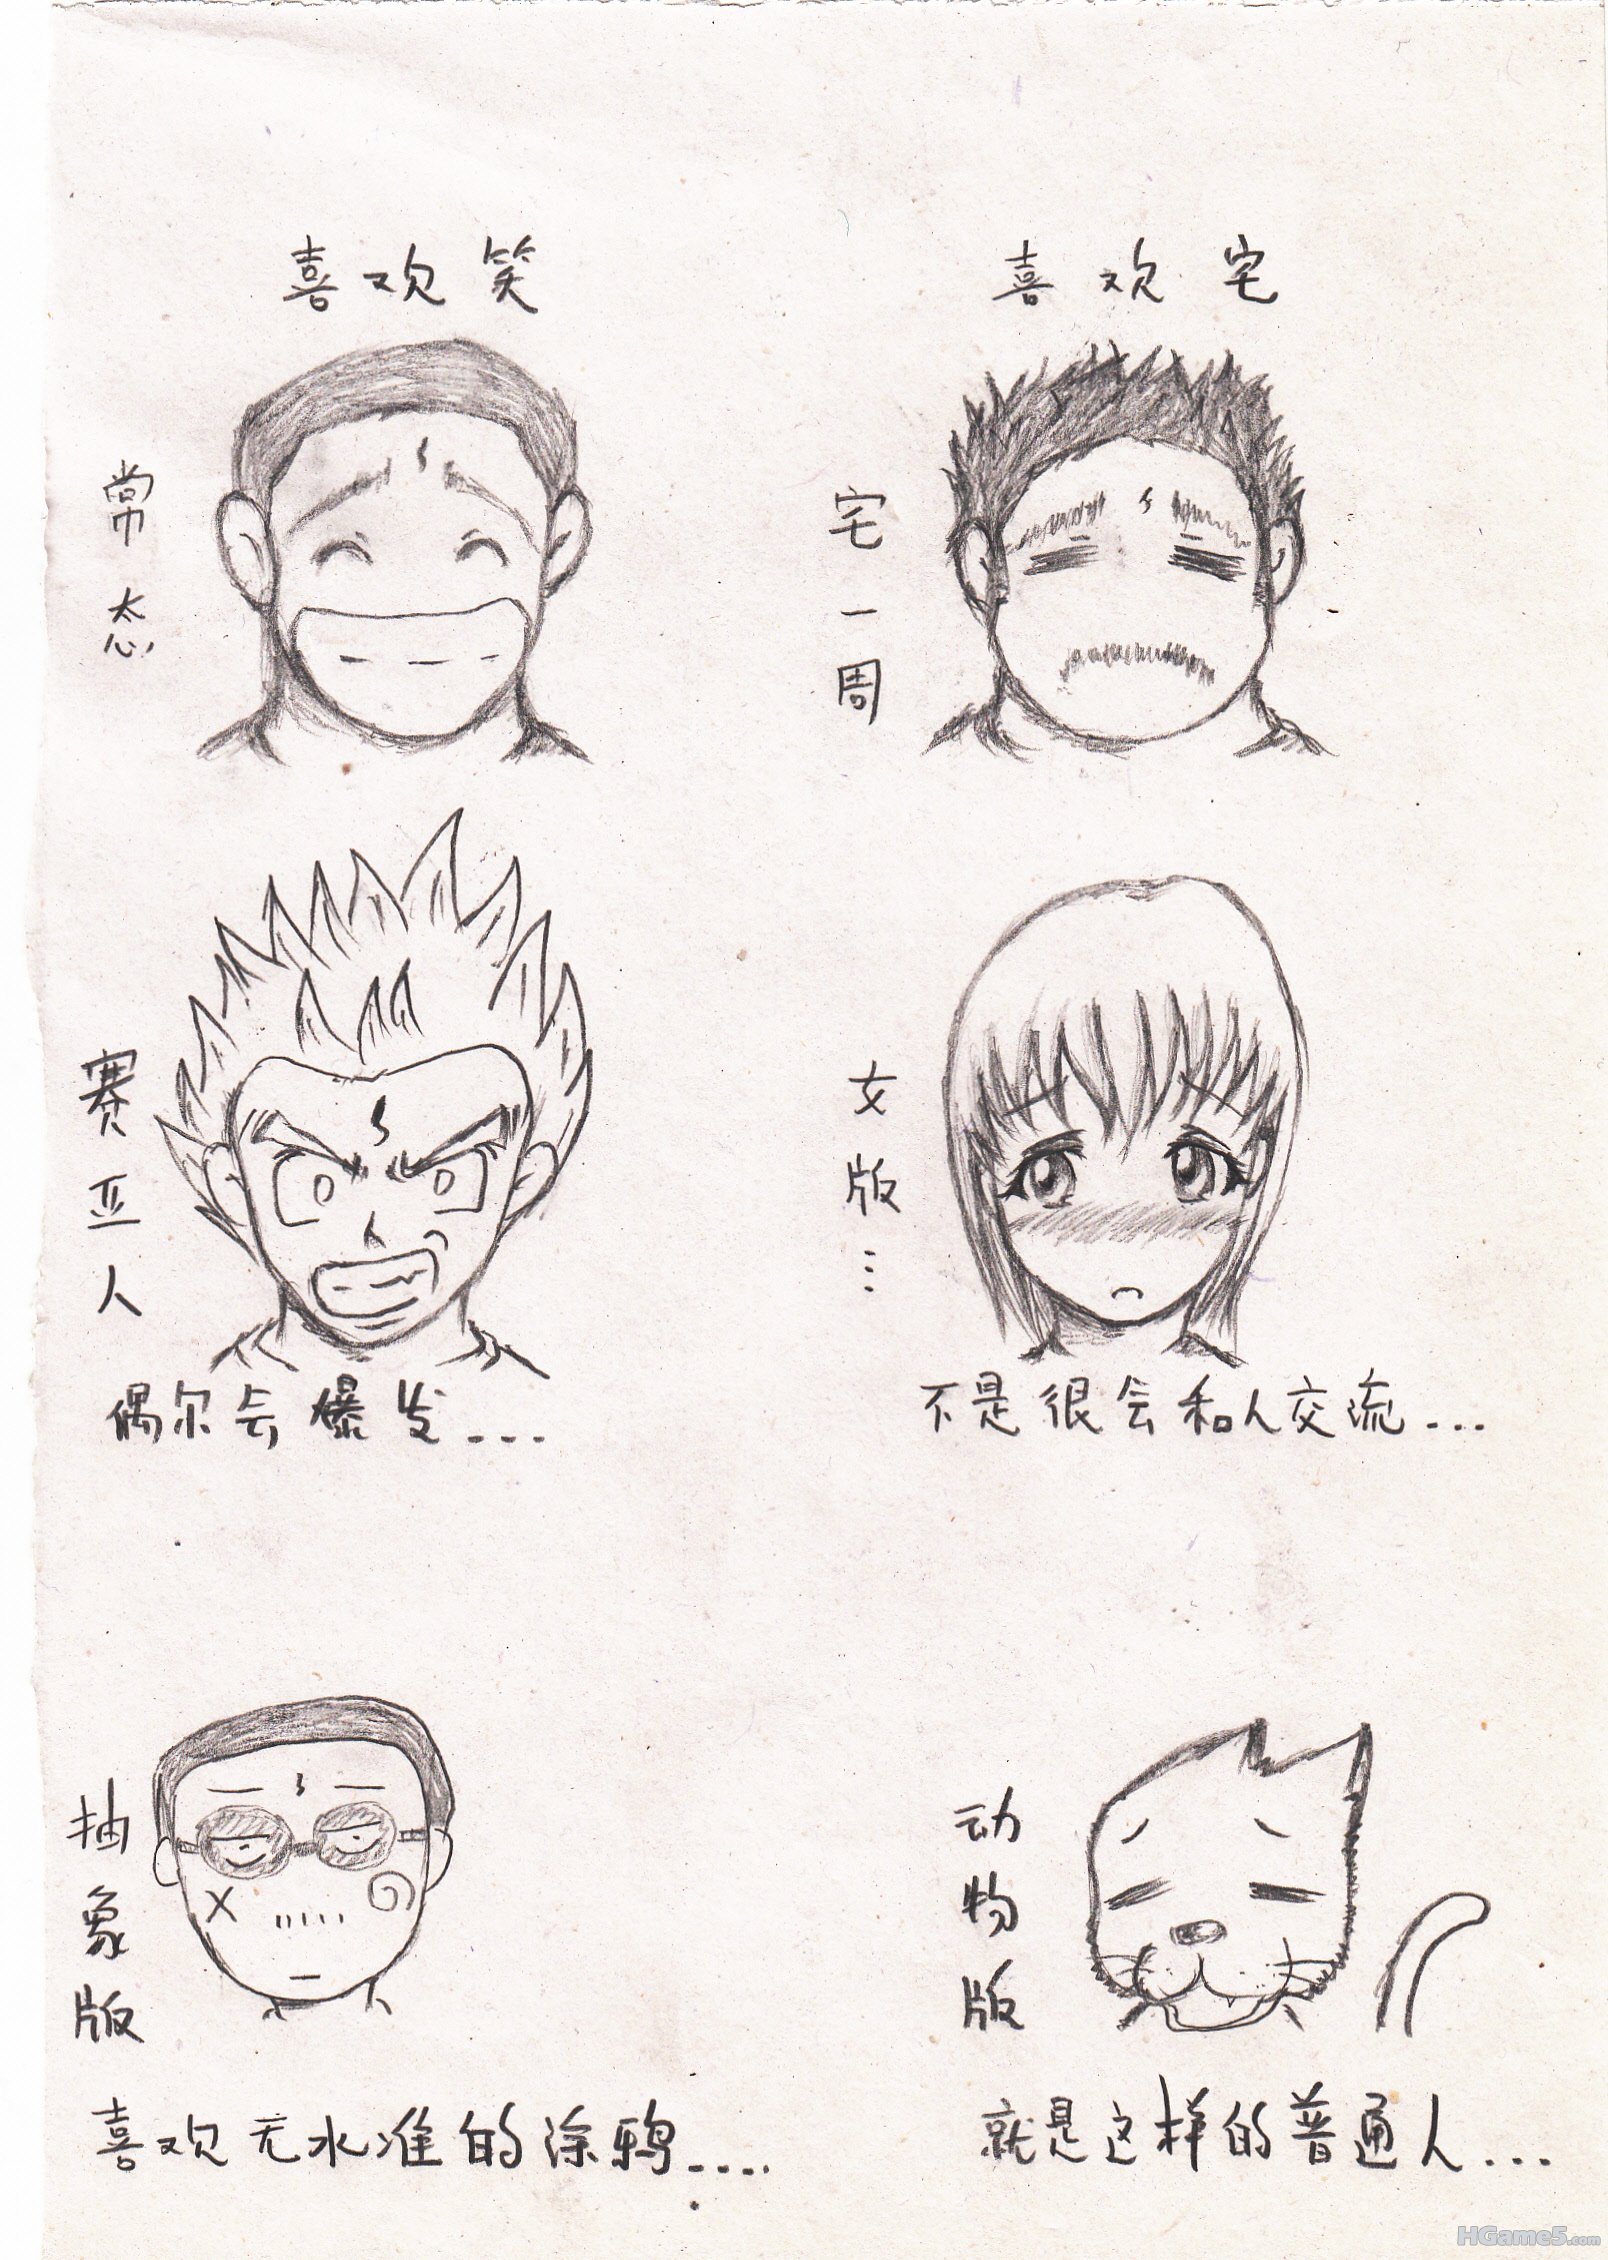 喜欢笑
常态
喜欢宅
宅一周
赛亚人
偶尔会爆发...
女版...
不是很会和人交流...
抽象版
喜欢无水准的涂鸦....
动物版
就是这样的普通人...
HGame5.com